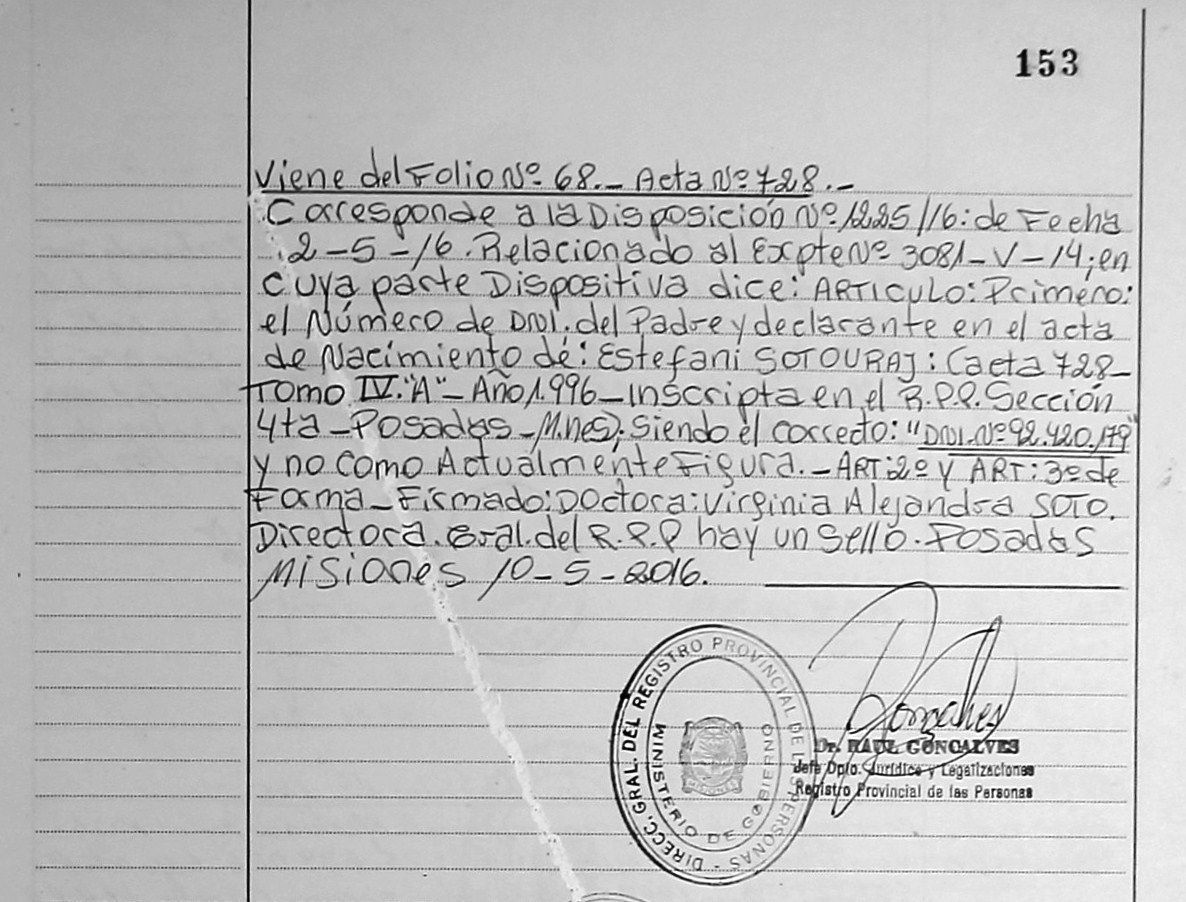 153
Viene del Folio Nº 68.- Acta Nº 728.-
Corresponde a la Disposición Nº 1225/16: de Fecha
2-5-16. Relacionado al Expte Nº 3081-V-14; en
cuya parte Dispositiva dice: ARTICULO: Primero:
el Número de DNI. del Padre y declarante en el acta
de Nacimiento de: Estefani SOTOURAJ: (acta 728-
Tomo IV. "A" - Año 1.996 - Inscripta en el R.P.P. Sección
4ta - Posadas - M.nes); Siendo el correcto: "DNI. Nº 92.420.179"
y no como Actualmente Figura. - ART: 2º y ART: 3º de
Forma - Firmado: Doctora: Virginia Alejandra SOTO.
Directora. Gral. del R.P.P hay un Sello. Posadas
Misiones 10-5-2016.
DIRECC. GRAL. DEL REGISTRO PROVINCIAL DE LAS PERSONAS -
MINISTERIO DE GOBIERNO
Dr. RAUL GONCALVES
Jefe Dpto. Jurídico y Legalizaciones
Registro Provincial de las Personas